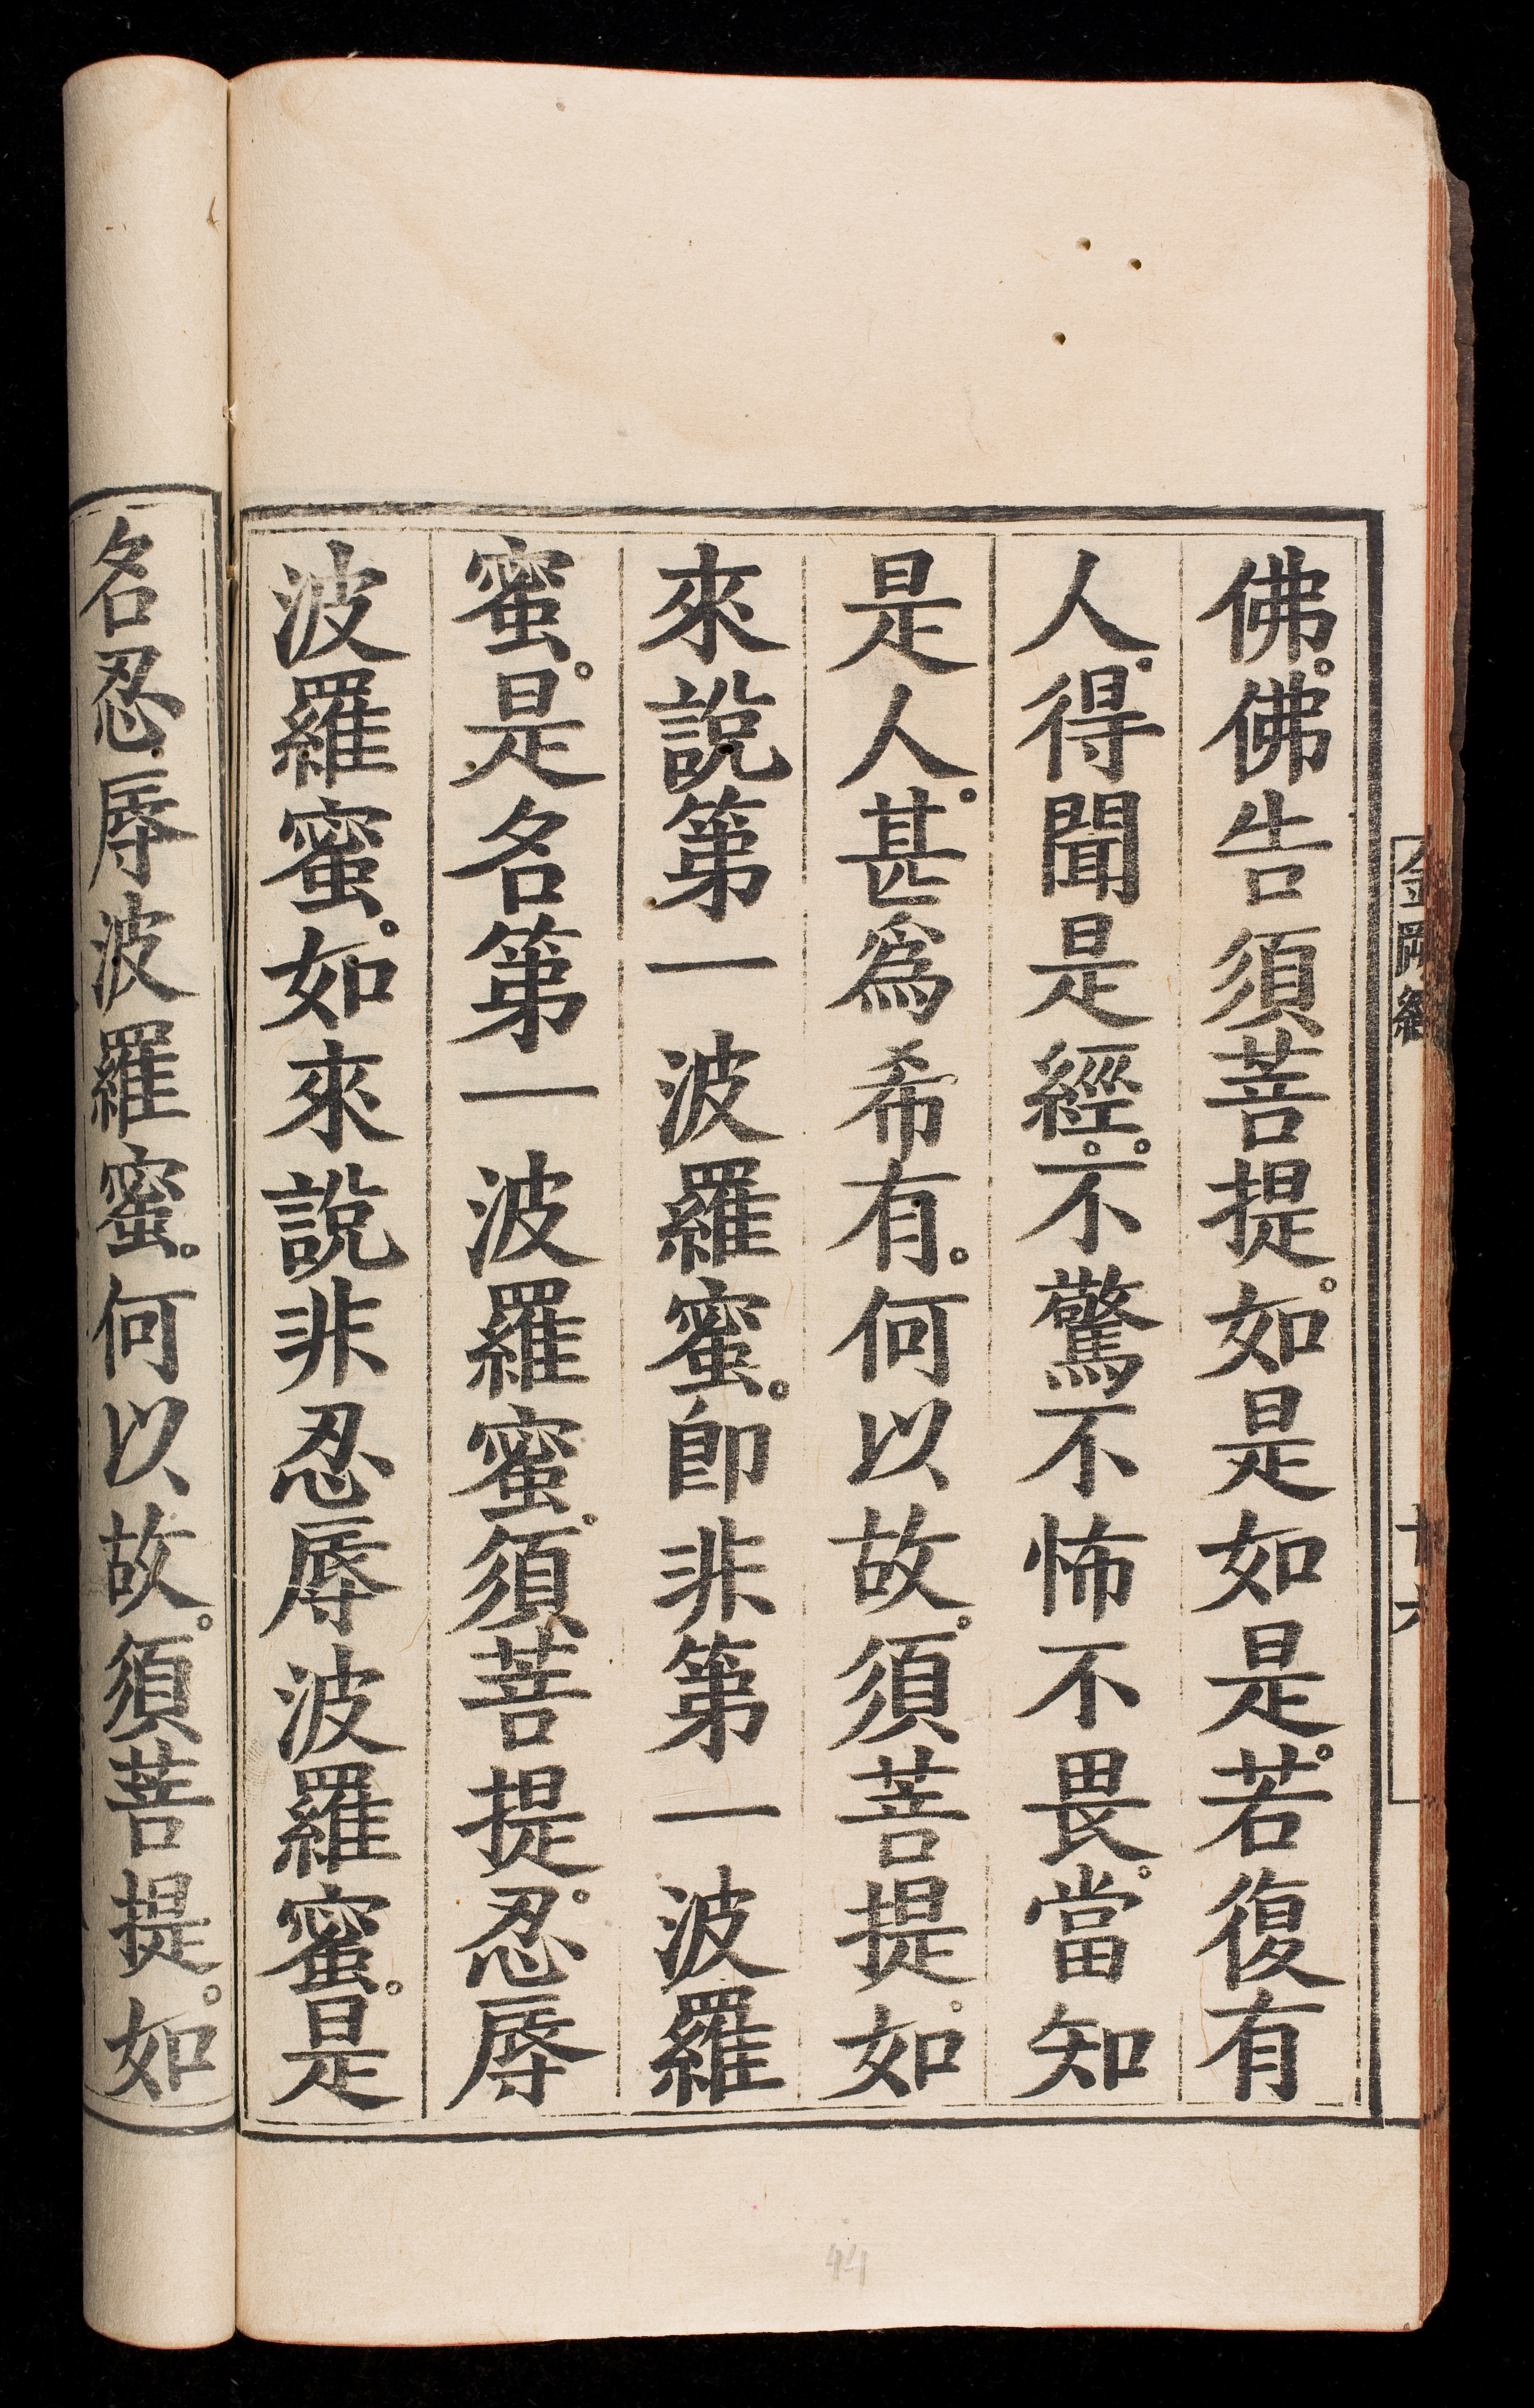 佛。佛告須菩提。如是如是。若復有
人。得聞是經。不驚不怖不畏。當知
是人。甚爲希有。何以故。須菩提。如
來說第一波羅蜜。卽非第一波羅
蜜。是名第一波羅蜜。須菩提。忍辱
波羅蜜。如來說非忍辱波羅蜜。是
名忍辱波羅蜜。何以故。須菩提。如
金剛經
44